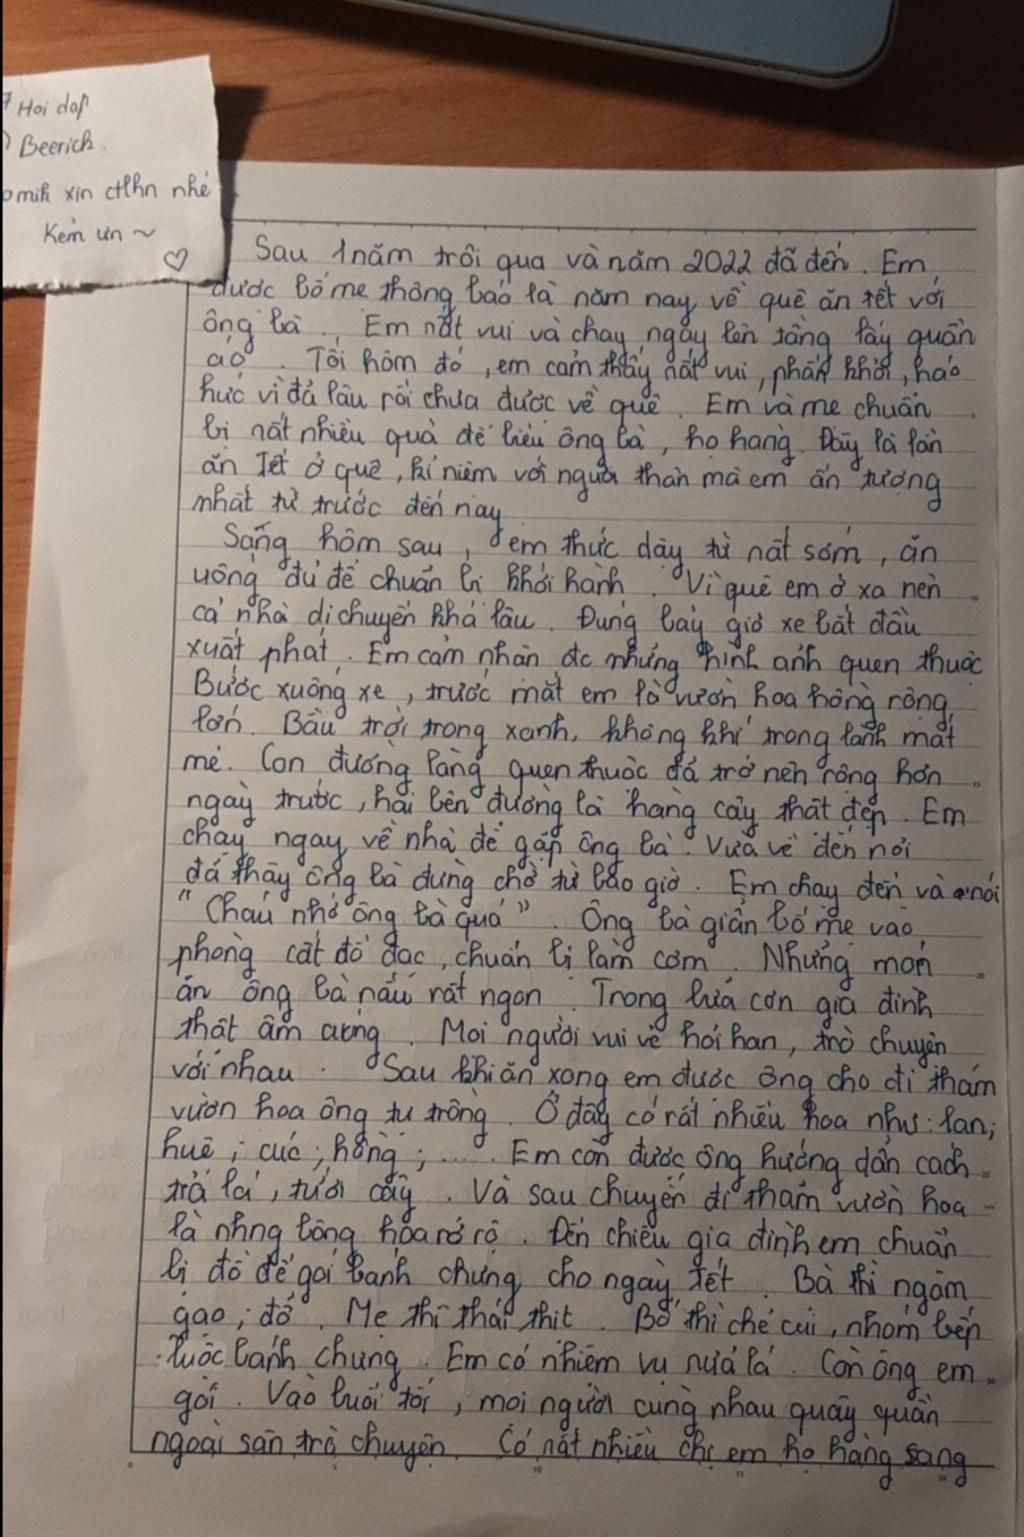 Hoi dap
Beerich
mik xin ctlhn nhé
Kẻm ưn ~
Sau 1 năm trôi qua và năm 2022 đã đến. Em
được bố mẹ thông báo là năm nay về quê ăn tết với
ông bà. Em nất vui và chạy ngay lên tầng lấy quần
áo. Tối hôm đó, em cảm thấy nất vui, phấn khởi, háo
hức vì đã lâu rồi chưa được về quê. Em và mẹ chuẩn
bị nất nhiều quà để biếu ông bà, họ hàng. Đây là lần
ăn Tết ở quê, kỉ niệm với người thân mà em ấn tượng
nhất từ trước đến nay
Sáng hôm sau, em thức dậy từ nất sớm, ăn
uống đủ để chuẩn bị khởi hành. Vì quê em ở xa nên
cả nhà di chuyển khá lâu. Đúng bảy giờ xe bắt đầu
xuất phát. Em cảm nhận đc những hình ảnh quen thuộc
Bước xuống xe, trước mắt em là vườn hoa hồng rộng
lớn. Bầu trời trong xanh, không khí trong lành mát
mẻ. Con đường làng quen thuộc đã trở nên rộng hơn
ngày trước, hai bên đường là hàng cây thật đẹp. Em
chạy ngay về nhà để gặp ông bà. Vừa về đến nơi
đã thấy ông bà đứng chờ từ bao giờ. Em chạy đến và nói
"Cháu nhớ ông bà quá". Ông bà giản bố mẹ vào
phòng cất đồ đạc, chuẩn bị làm cơm. Những món
ăn ông bà nấu rất ngon. Trong bữa cơn gia đình
thật ấm cúng. Mọi người vui vẻ hỏi han, trò chuyện
với nhau. Sau khi ăn xong em được ông cho đi thăm
vườn hoa ông tự trồng. Ở đây có rất nhiều hoa như: lan;
huệ; cúc; hồng; .... Em còn được ông hướng dẫn cách
trả lá, tưới cây. Và sau chuyến đi thăm vườn hoa
là nhng bông hoa rớ rộ. Đến chiều gia đình em chuẩn
bị đồ để gói bánh chưng cho ngày tết. Bà thì ngâm
gạo; đỗ. Mẹ thì thái thịt. Bố thì chẻ củi, nhóm bếp
luộc bánh chưng. Em có nhiệm vụ nửa lá. Còn ông em
gói. Vào buổi tối, mọi người cùng nhau quây quần
ngoài sân trò chuyện. Có nất nhiều chị em họ hàng sang